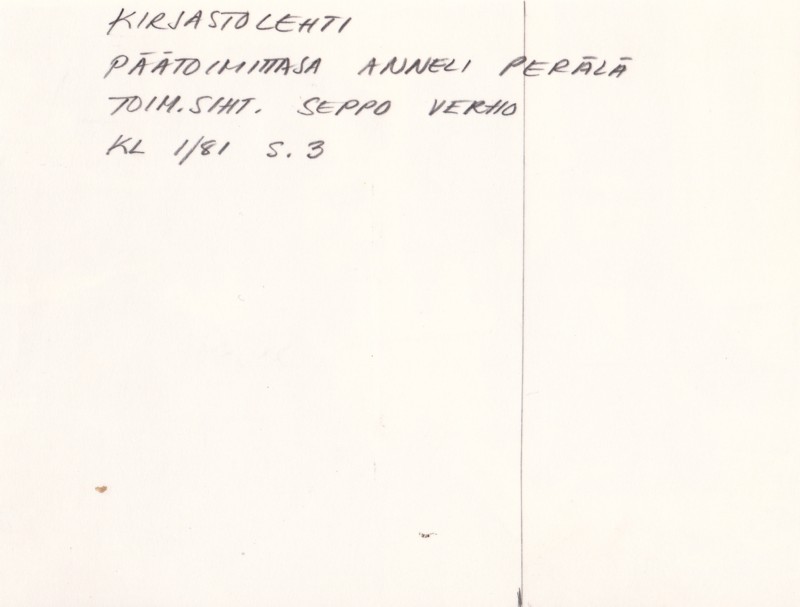 KIRJASTOLEHTI
PÄÄTOIMITTAJA ANNELI PERÄLÄ
TOIM.SIHT. SEPPO VERHO
KL 1/81 S. 3